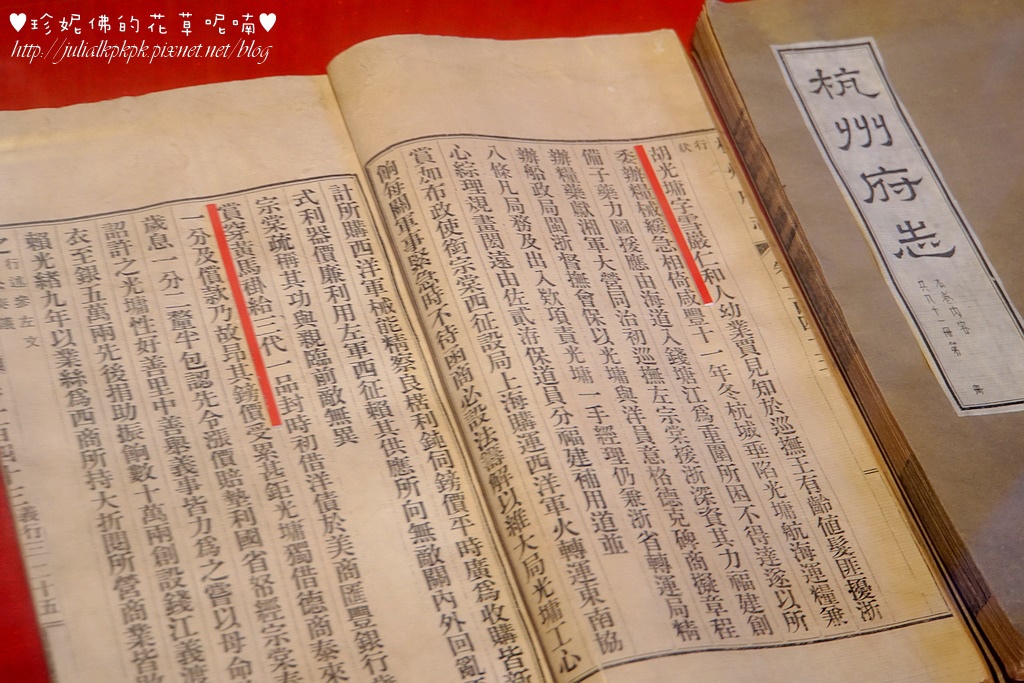 ♥珍妮佛的花草呢喃♥
http://julialkpkpk.pixnet.net/blog
杭州府志
胡光墉字雪巖仁和人幼業賈見知於巡撫王有齡値髮匪擾浙
委辦糧械緩急相倚咸豐十一年冬杭城垂陷光墉航海運糧兼
備子藥力圖援應由海道入錢塘江為重圍所困不得達遂以所
辦糧藥獻湘軍大營同治初巡撫左宗棠援浙深資其力福建創
辦船政局閩浙督撫會保以光墉與洋員意格德克碑商擬章程
八條凡局務及出入款項責光墉一手經理仍兼浙省轉運局精
心綜理規畫閎遠由佐貳洊保道員分福建補用道並
賞加布政使銜宗棠西征設局上海購運西洋軍火轉運東南協
餉每關軍事緊急時不待函商必設法籌解以維大局光墉工心
計所購西洋軍械能精察良楛利鈍伺鎊價平時廣為收購皆新
式利器價廉利用左軍西征賴其供應所向無敵關內外回亂
宗棠疏稱其功與親臨前敵無異
賞穿黃馬褂給三代一品封時初借洋債於美商匯豐銀行
一分及償款乃故昂其鎊價受累甚鉅光墉獨借德商泰來
歲息一分二釐半包認先令漲價賠墊利國省帑經宗棠
詔許之光墉性好善里中善舉義事皆力為之嘗以母命
衣至銀五萬兩先後捐助振銅數十萬兩創設錢江義渡
賴光緒九年以業絲為西商所持大折閱所營商業皆
行述參左文